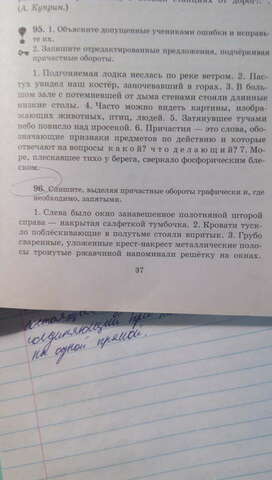 станциях от дорог.
(А. Куприн.)
95. 1. Объясните допущенные учениками ошибки и исправь-
те их.
2. Запишите отредактированные предложения, подчёркивая
причастные обороты.
1. Подгоняемая лодка неслась по реке ветром. 2. Пас-
тух увидел наш костёр, заночевавший в горах. 3. В боль-
шом зале с потемневшей от дыма стенами стояли длинные
низкие столы. 4. Часто можно видеть картины, изобра-
жающих животных, птиц, людей. 5. Затянувшее тучами
небо повисло над просекой. 6. Причастия — это слова, обо-
значающие признаки предметов по действию и которые
отвечают на вопросы какой? что делающий? 7. Мо-
ре, плескавшее тихо у берега, сверкало фосфорическим бле-
ском.
96. Спишите, выделяя причастные обороты графически и, где
необходимо, запятыми.
1. Слева было окно занавешенное полотняной шторой
справа — накрытая салфеткой тумбочка. 2. Кровати туск-
ло поблёскивающие в полутьме стояли впритык. 3. Грубо
сваренные, уложенные крест-накрест металлические поло-
сы тронутые ржавчиной напоминали решётку на окнах.
37
соединяющий при
на одной прямой.